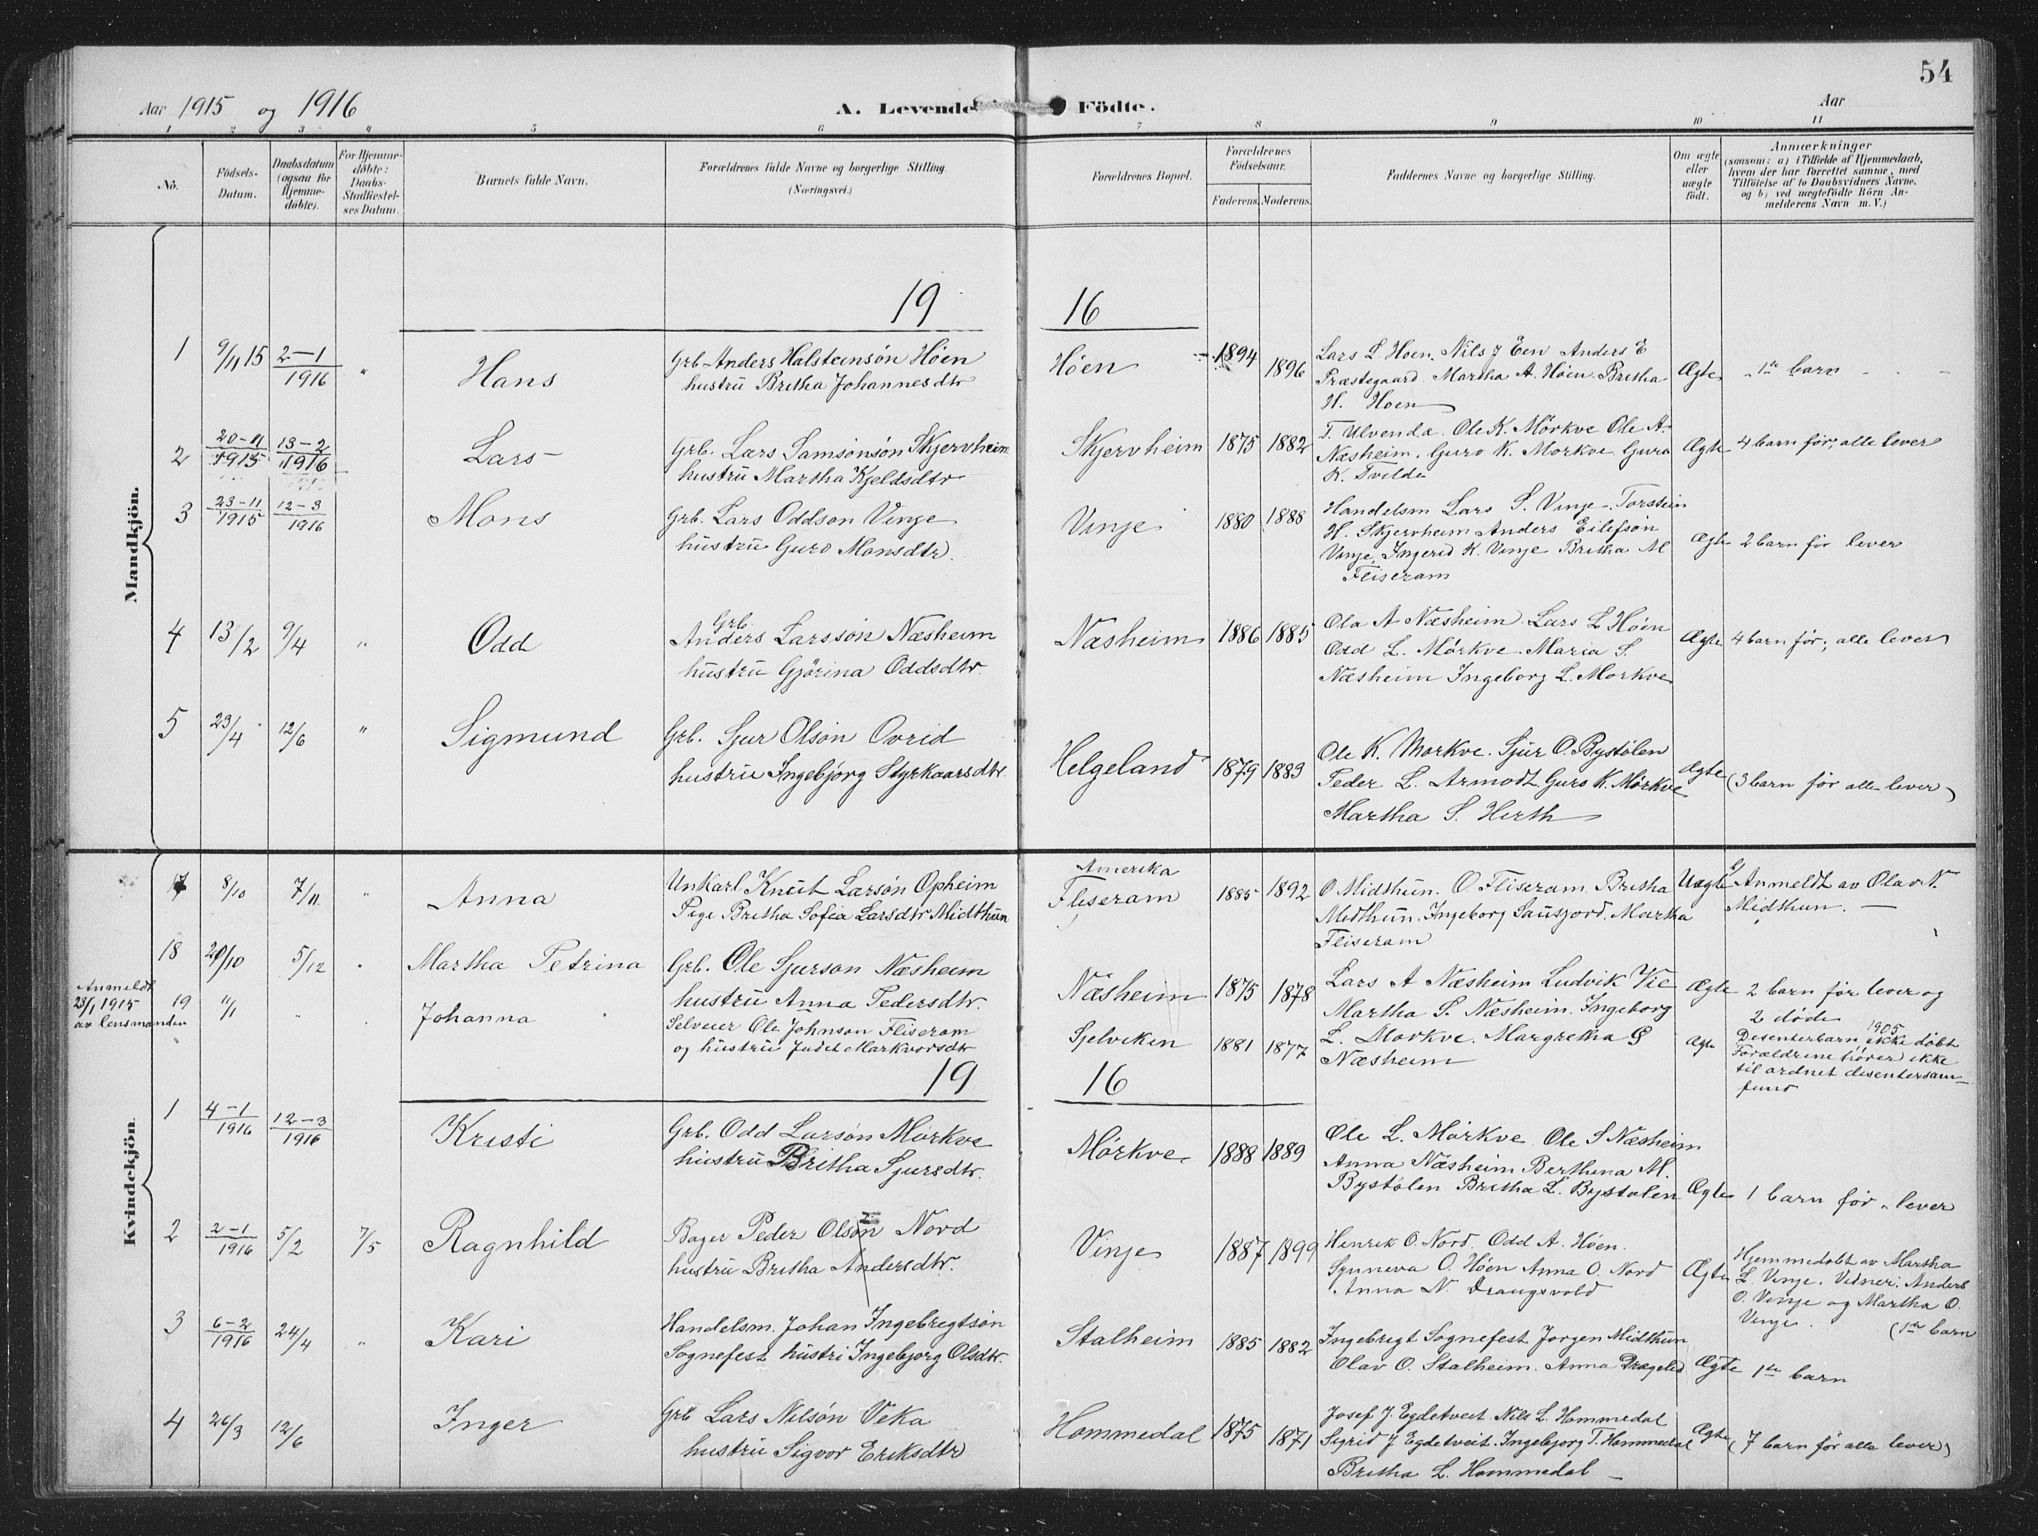 Aar 1915 og 1916 A. Levende Födte. Aar 54
1 2 3 4 5 6 7 8 9 10 11
No. Födsels-Datum. Daabsdatum (ogsaa for Hjemme-döbte). For Hjemme-döbte: Daabs-Stadfæstel-ses Datum. Barnets fulde Navn. Forældrenes fulde Navne og borgerlige Stilling. (Næringsvei.) Forældrenes Bopæl. Forældrenes Födselsaar. Faderens. Moderens. Faddernes Navne og borgerlige Stilling. Om ægte eller uægte födt. Anmærkninger (saasom: a) i Tilfælde af Hjemmedaab, hvem der har forrettet samme, med Tilföielse af to Daabsvidners Navne, og b) ved uægtefödte Börn Anmelderens Navn m. V.)
Mandkjön.
19 16
1 9/11 15 2-1/1916 " Hans Grb. Anders Halsteinsøn Høen
hustru Britha Johannesdtr Høen 1894 1896 Lars L. Hoen. Nils J Een Anders E
Præstegaard. Martha A. Høen. Britha
H. Hoen Ægte 1ste barn
2 20-11/1915 13-2/1916 Lars Grb. Lars Samsonsøn Skjervheim
hustru Martha Kjeldsdtr Skjervheim 1875 1882 T. Ulvenda. Ole K. Mørkve Ole A.
Næsheim. Guro K. Mørkve Guro
K. Tvilde Ægte 4 barn før, alle lever
3 23-11/1915 12-3/1916 Mons Grb. Lars Oddson Vinge
hustru Guro Monsdtr. Vinje 1880 1888 Handelsm Lars S. Vinje. Torstein
H. Skjervheim Anders Eilefson
Vinje, Ingerid K. Vinje Britha M
Fliseram Ægte 2 barn før lever
4 13/2 9/4 " Odd Grb. Anders Larssøn Næsheim
hustru Gjørina Oddsdtr. Næsheim 1886 1885 Ola A Næsheim. Lars L Høen
Odd L. Mørkve. Maria S.
Næsheim Ingeborg L. Morkve Ægte 4 barn før; alle lever
5 23/4 12/6 " Sigmund Grb. Sjur Olsøn Ovrid
hustru Ingebjørg Styrkaarsdtr. Helgeland 1879 1883 Ole K. Morkve. Sjur O. Bystølen
Peder L. Armodt Guro K. Mørkve
Martha S. Hirth Ægte (3 barn før alle lever)
Kvindekjön.
17 8/10 7/11 " Anna Unkarl Knut Larsøn Opheim
Pige Britha Sofia Larsdtr Midthun Amerika
Fliseram 1885 1892 O Midthun. O Fliseram. Britha
Midthun. Ingeborg Sausjord. Martha
Fliseram Uægte Anmeldt av Olav N.
Midthun.
18 29/10 5/12 Martha Petrina Grb. Ole Sjurson Næsheim
hustru Anna Pedersdtr. Næsheim 1875 1878 Lars A Næsheim Ludvik Vie
Martha S. Næsheim. Ingeborg
L. Morkve. Margretha G
Næsheim Ægte 2 barn før lever og
2 døde
Anmeldt
23/1 1915
av lensmanden 19 11/1 " Johanna Selveier Ole Johnson Fliseram
og hustru Judet Markvorsdtr Sjelviken 1881 1877 Ægte 1905
Desenterbarn, ikke døbt
Forældrene hører ikke
til ordnet desentersam-
fund
19 16
1 4-1/1916 12-3/1916 Kristi Grb. Odd Larsøn Mørkve
hustru Britha Sjursdtr. Mørkve 1888 1889 Ole L. Mørkve. Ole S Næsheim
Anna Næsheim Berthina M.
Bystølen Britha L. Bystølen Ægte 1 barn før, lever
2 2-1/1916 5/2 7/5 Ragnhild Bager Peder Olsøn Nord
hustru Britha Andersdtr. Vinje 1887 1899 Henrik O. Nord. Odd A. Høen.
Synneva O. Høen Anna O. Nord
Anna N. Draugsvold Ægte Hjemmedøbt av Martha
L. Vinje. Vidner: Anders
O. Vinje og Martha O.
Vinje. (1ste barn
3 6-2/1916 24/4 " Kari Handelsm. Johan Ingebregtsøn
Sognefest hustri Ingebjorg Olsdtr. Stalheim 1885 1882 Ingebrigt Sognefest Jorgen Midthun
Olav O. Stalheim. Anna Drægelid Ægte 1ste barn
4 26/3 12/6 Inger Grb Lars Nilsøn Veka
hustru Sigvor Eriksdtr Hommedal 1875 1871 Josef J. Egdetveit Nils L. Hommedal
Sigrid J Egdetveit. Ingebjorg T. Hommedal
Britha L. Hommedal Ægte (7 barn før alle lever)